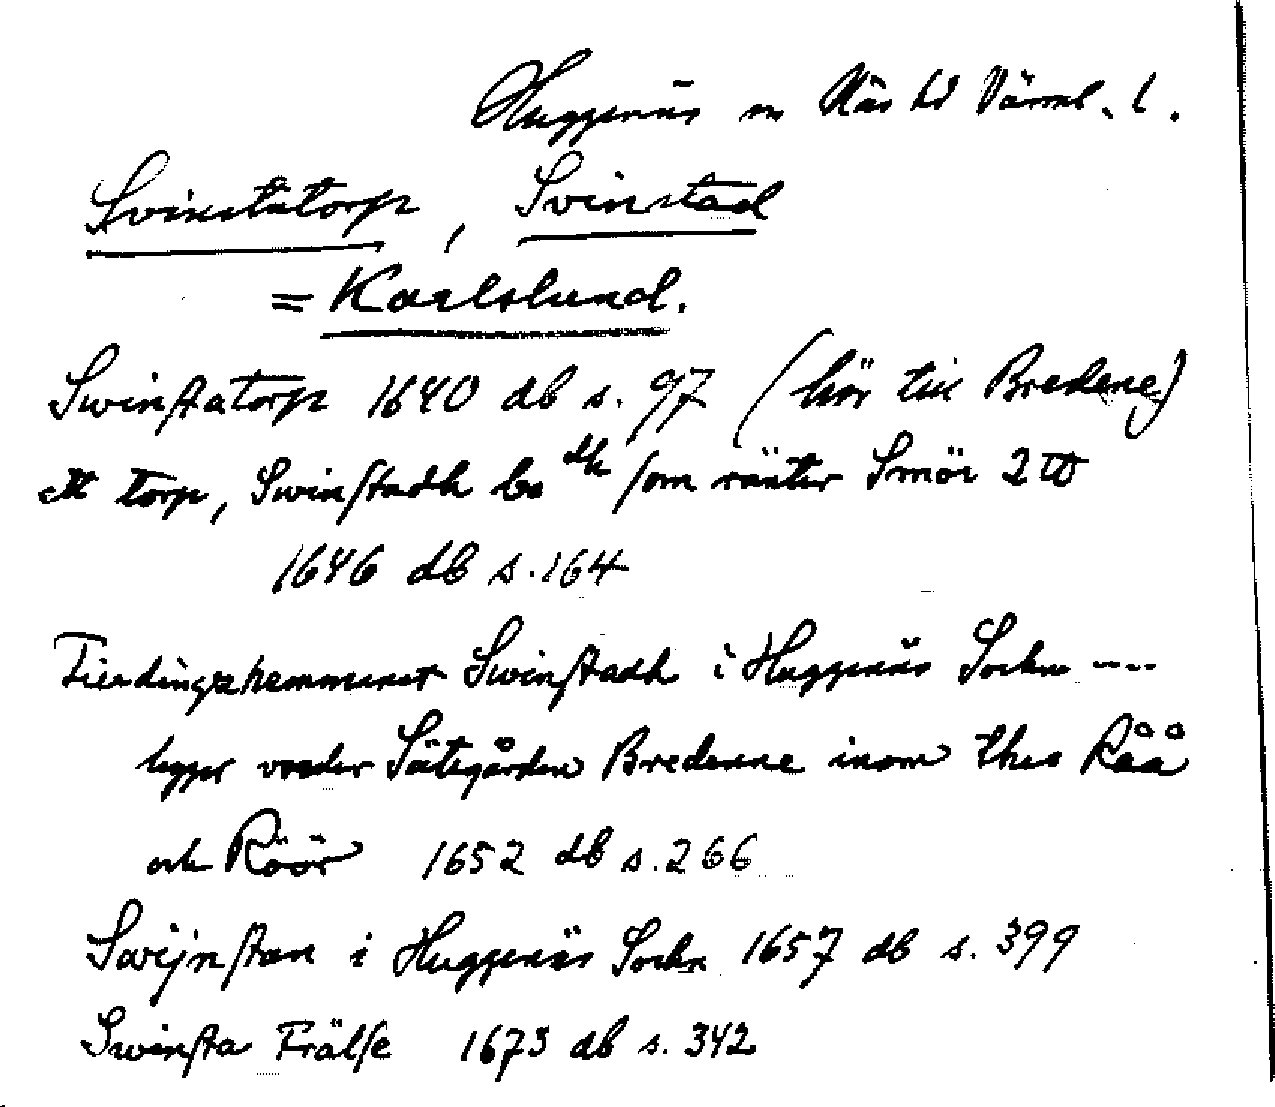 Huggenäs sn Näs hd Värml. l.
Svinstatorp, Svinstad
= Karlslund.
Swinstatorp 1640 db s. 97 (hör till Bredene)
ett torp, Swinstadh be dh som ränter Smör 2 ℔
1646 db s. 164
Fierdingzhemmenet Swinstadh i Huggenäs Sochn ----
ligger vnder Sätegården Bredenne inom thes Råå
och Röör 1652 db s. 266
Swijnstan i Huggenäs Sochn 1657 db s. 399
Swinsta Frälse 1673 db s. 342